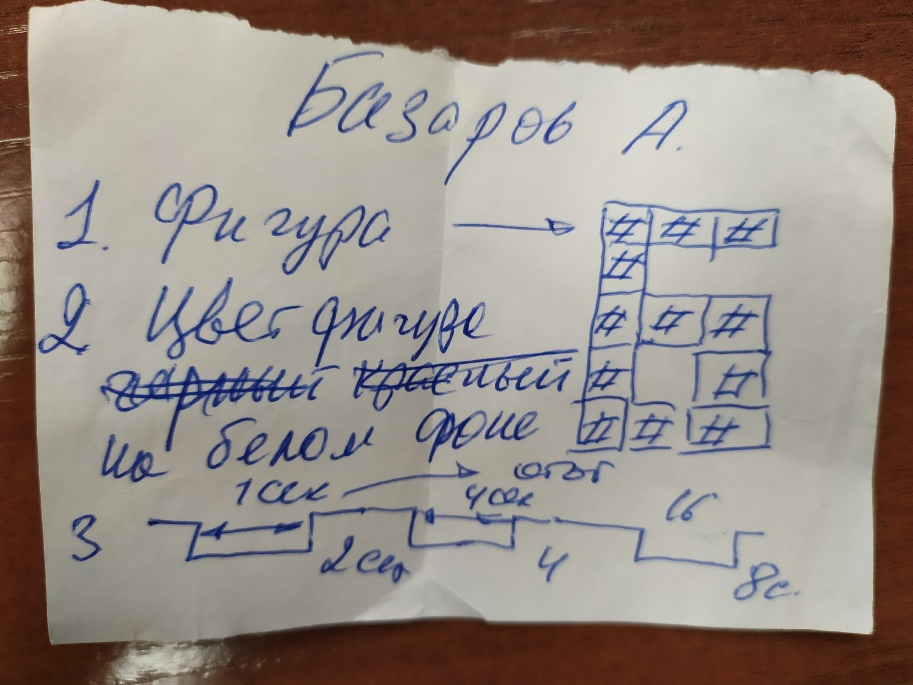 Базаров А.
1. Фигура # # #
#
2 Цвет фигура # # #
черный красный # #
на белом фоне # # #
1 сек 4 сек 16
3 2 сек 4 8 с.